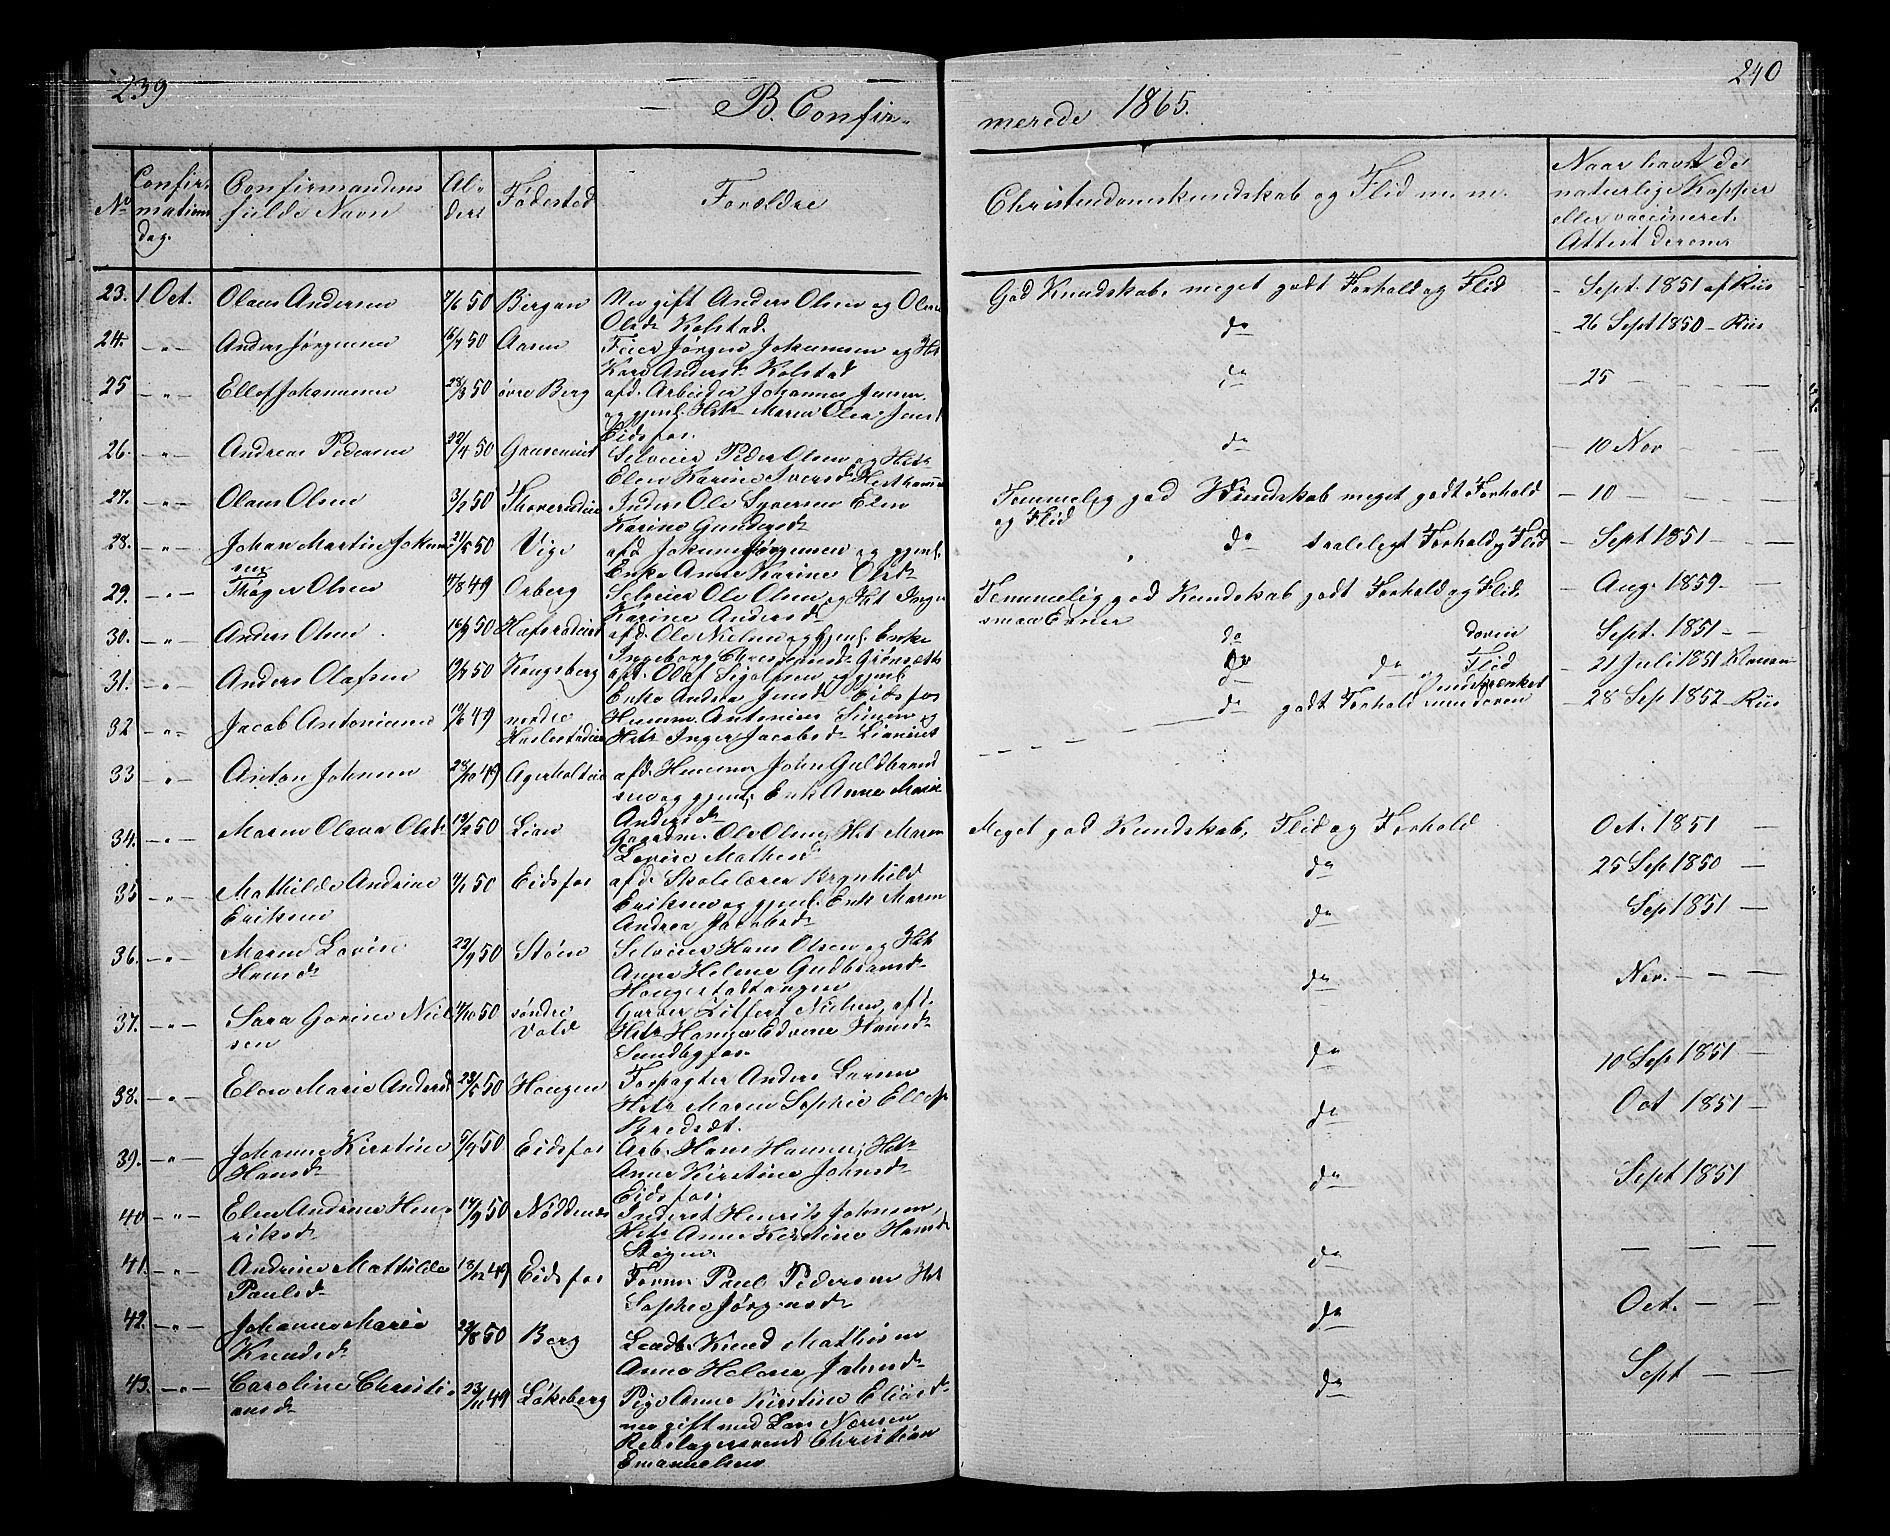 239
240
B. Confir-
merede 1865.
No
Confir-
mations
dag.
Confirmandens
fulde Navn
Al-
ders
Fødested
Forældre
Christendomskundskab og Flid m. m.
Naar havt de
naturlige Kopper
eller vaccineret.
Attest derom
23. 1 Oct. Olaus Andersen 7/6 50 Bergan Nu gift Anders Olsen og
Olsdr Kolstad.
God Kundskab, meget godt Forhold og Flid - Sept. 1851 af Riis
24. -"- Anders Jørgensen 16/7 50 Aasen Feier Jørgen Johannesen og Hst
Kari Andersdr Kolstad
do - 26 Sept 1850 - Riis
25 -"- Ellef Johannesen 28/3 50 øvre Berg afd. Arbeider Johannes Jensen
og gjenl. Hstr Maren Olea Jensd
Eidsfos.
do - 25 - - -
26. -"- Andreas Pedersen 22/4 50 Selveier Peder Olsen og Hstr
Elen Karine Iversdr
do - 10 Nov - - -
27. -"- Olaus Olsen 3/2 50 Inders Ole Syversen Elen
Karine Gundersdr
Temmelig god Kundskab meget godt Forhold
og Flid
- 10 - - -
28. -"- Johan Martin Johan
sen 21/5 50 Vige afd. Johannes Jørgensen og gjenl.
Enke Anne Karine Olsdr
do taaleligt Forhold og Flid - Sept 1851 - -
29. -"- Thøger Olsen 4/8 49 Orberg Selveier Ole Olsen og Hst Inger
Karine Andersdr
Temmelig god Kundskab godt Forhold og Flid
smaa Evner
- Aug. 1859 - -
30. -"- Anders Olsen 16/9 50 afd. Ole Nielsen og gjenl. Enke
Ingeborg
do doven
Flid
Sept. 1851 - -
31. -"- Anders Olafsen 19/7 50 Kongsberg afd. Olaf og gjenl
Enke Andrea Jensdr Eidsfos
do do og indskrænket
- 21 Juli 1851
32 -"- Jacob Antonisen 19/6 49 nordre
Husm. Antonius Simen og
Hstr Inger Jacobsdr
do godt Forhold men doven - 28 Sep 1852 - Riis
33 -"- Anton Johnsen 28/10 49 Agerholteie afd. Husmn John Guldbrand
sen og gjenl. Enk Anne Marie
Andersdr
- - - - -
34. -"- Maren Olava Olsdr 13/2 50 Lian Gaardm. Ole Olsen, Hst Maren
Lovise Mathisd
Meget god Kundskab, Flid og Forhold Oct. 1851 -
35 -"- Mathilde Andrine
Eriksen 4/1 50 Eidsfos afd. Skolelærer Brynhild
Eriksen og gjenl. Enk Maren
Andrea Jacobsdr
do 25 Sep 1850 -
36. -"- Maren Lovise
Hansdr 22/9 50 Støen Selveier Hans Olsen og Hst
Anne Helene Gudbrandsdr
Haugestadtangen
do Sep 1851 -
37. -"- Sara Gorine Niel
sen 4/10 50 søndre
Vold Garver Nielsen, afd.
Hstr Edvine Hansdr
Sundbyfos.
do Nov. - - -
38. -"- Elen Marie Andersd 23/5 50 Haugen Forpagter Anders Larsen
Hstr Maren Sophie Ellefs
Bredsæt.
do 10 Sep 1851 -
39. -"- Johanne Kirstine
Hansdr 5/4 50 Eidsfos Arb. Hans Hansen, Hstr
Anne Kirstine Johnsdr
Eidsfos.
do Oct 1851 -
40 -"- Elen Andrine Hen
riksdr 14/9 50 Nøddenes Inderst Henrik Johnsen,
Hstr Anne Kirstine Hansdr
do Sept 1851
41. -"- Andrine Mathilde
Paulsdr 18/12 49 Eidsfos Former Paul Pedersen Hst
Sophie Jørgensdr
do - - -
42. -"- Johanne Marie
Knudsdr 22/8 50 Berg Leadb. Knud Mathisen
Anne Helene Johnsdr
do Oct. - -
43. -"- Caroline Christi
ansdr 23/11 49 Løkeberg Pige Anne Kirstine Eliasdr
nu gift med Lars Næsesen
Christian
Emanuelsen
do Sept - -